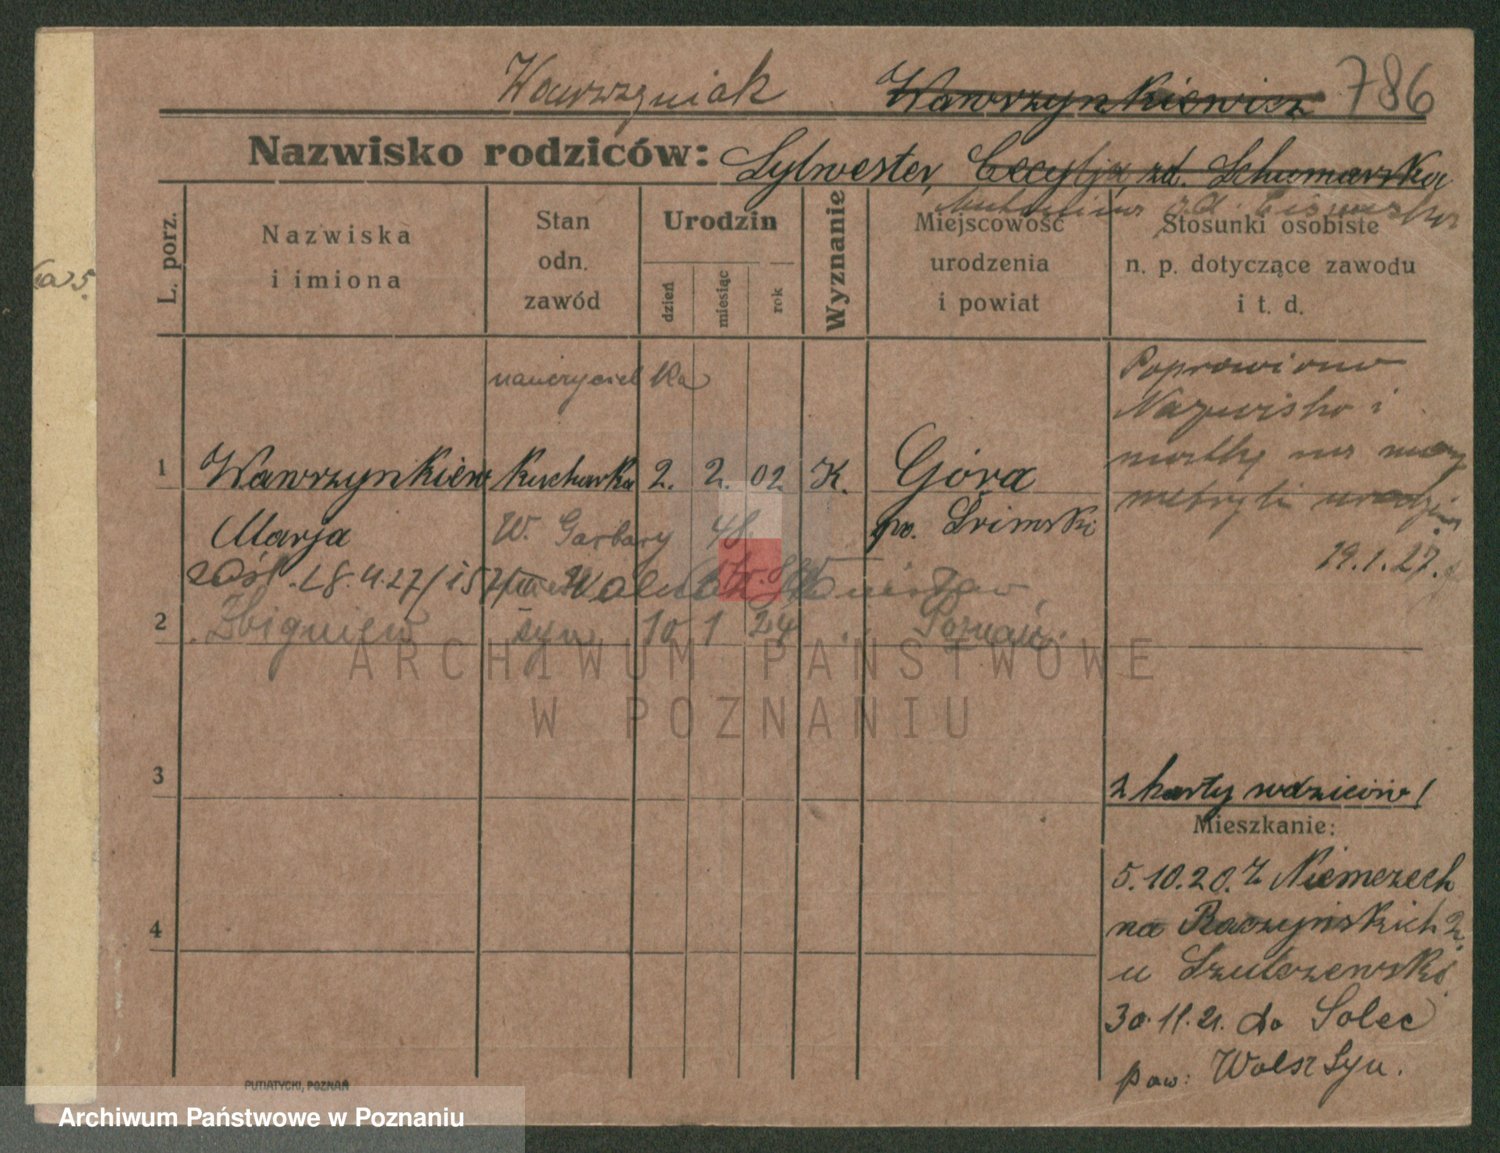 Wawrzyniak Wawrzynkiewicz 786
Nazwisko rodziców: Sylwester, Cecylja, zd. Schumarska
zd.
L. porz.
Nazwiska
i imiona
Stan
odn.
zawód
Urodzin
dzień
miesiąc
rok
Wyznanie
Miejscowość
urodzenia
i powiat
Stosunki osobiste
n. p. dotyczące zawodu
i t. d.
nauczycielka
Poprawiono
Nazwisko i
matkę na mocy
metryki urodzin
19.1.27.
1 Wawrzynkiew Kucharka 2. 2. 02 K. Góra
Marja W. Garbary 48 pow. Śrimski
2 Zbigniew syn 10 1 24 Poznań.
3
4
2 karty rodziców!
Mieszkanie:
5.10.20. Z Niemczech
na Raczyńskich 2.
u Szulczewski
30.11.21. do Solec
pow:
PUTIATYCKI, POZNAŃ
ARCHIWUM PAŃSTWOWE
W POZNANIU
Archiwum Państwowe w Poznaniu